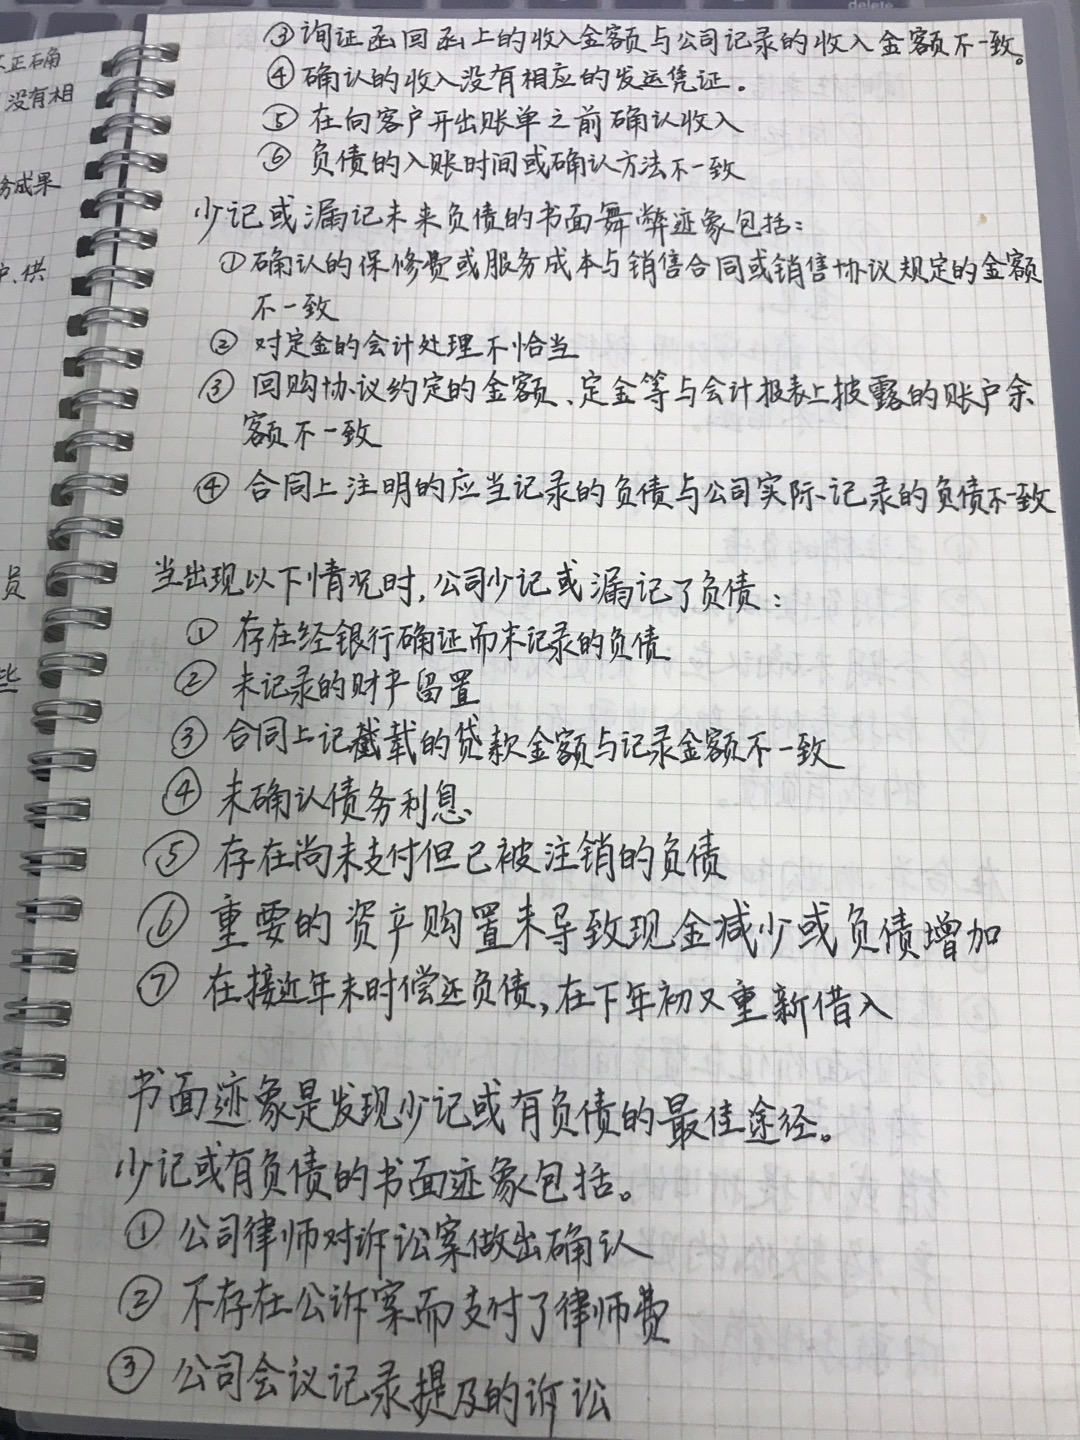 delete
不正确
没有相
务成果
户、供
员
些
③ 询证函回函上的收入金额与公司记录的收入金额不一致。
④ 确认的收入没有相应的发运凭证.
⑤ 在向客户开出账单之前确认收入
⑥ 负债的入账时间或确认方法不一致
少记或漏记未来负债的书面舞弊迹象包括：
① 确认的保修费或服务成本与销售合同或销售协议规定的金额
不一致
② 对定金的会计处理不恰当
③ 回购协议约定的金额、定金等与会计报表上披露的账户余
额不一致
④ 合同上注明的应当记录的负债与公司实际记录的负债不一致
当出现以下情况时, 公司少记或漏记了负债：
① 存在经银行确证而未记录的负债
② 未记录的财产留置
③ 合同上记载的贷款金额与记录金额不一致
④ 未确认债务利息
⑤ 存在尚未支付但已被注销的负债
⑥ 重要的资产购置未导致现金减少或负债增加
⑦ 在接近年末时偿还负债, 在下年初又重新借入
书面迹象是发现少记或有负债的最佳途径。
少记或有负债的书面迹象包括。
① 公司律师对诉讼案做出确认
② 不存在公诉案而支付了律师费
③ 公司会议记录提及的诉讼